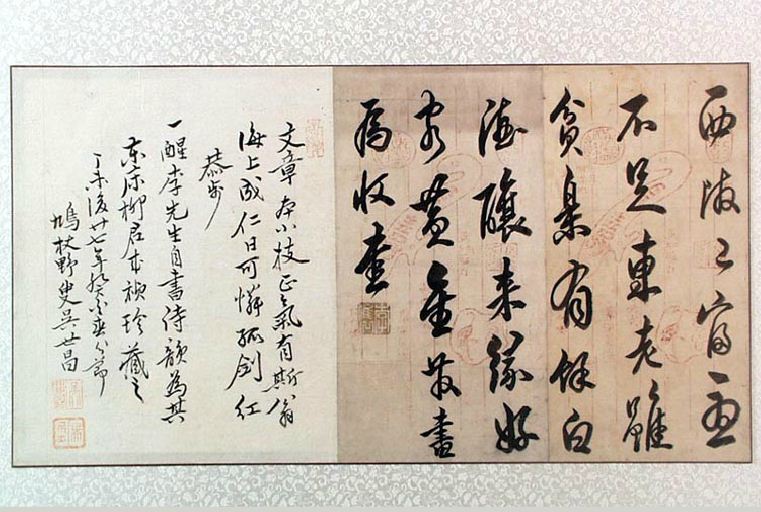 西隣已富憂
不足東老雖
貧樂有餘白
酒釀來緣好
客黃金散盡
為收書
文章本小技正氣有斯翁
海上成仁日可憐孤劍紅
恭步
一醒李先生自書詩韻為其
東床柳君 禎珍藏之
丁未後廿七年 節
鳩杖野叟吳世昌